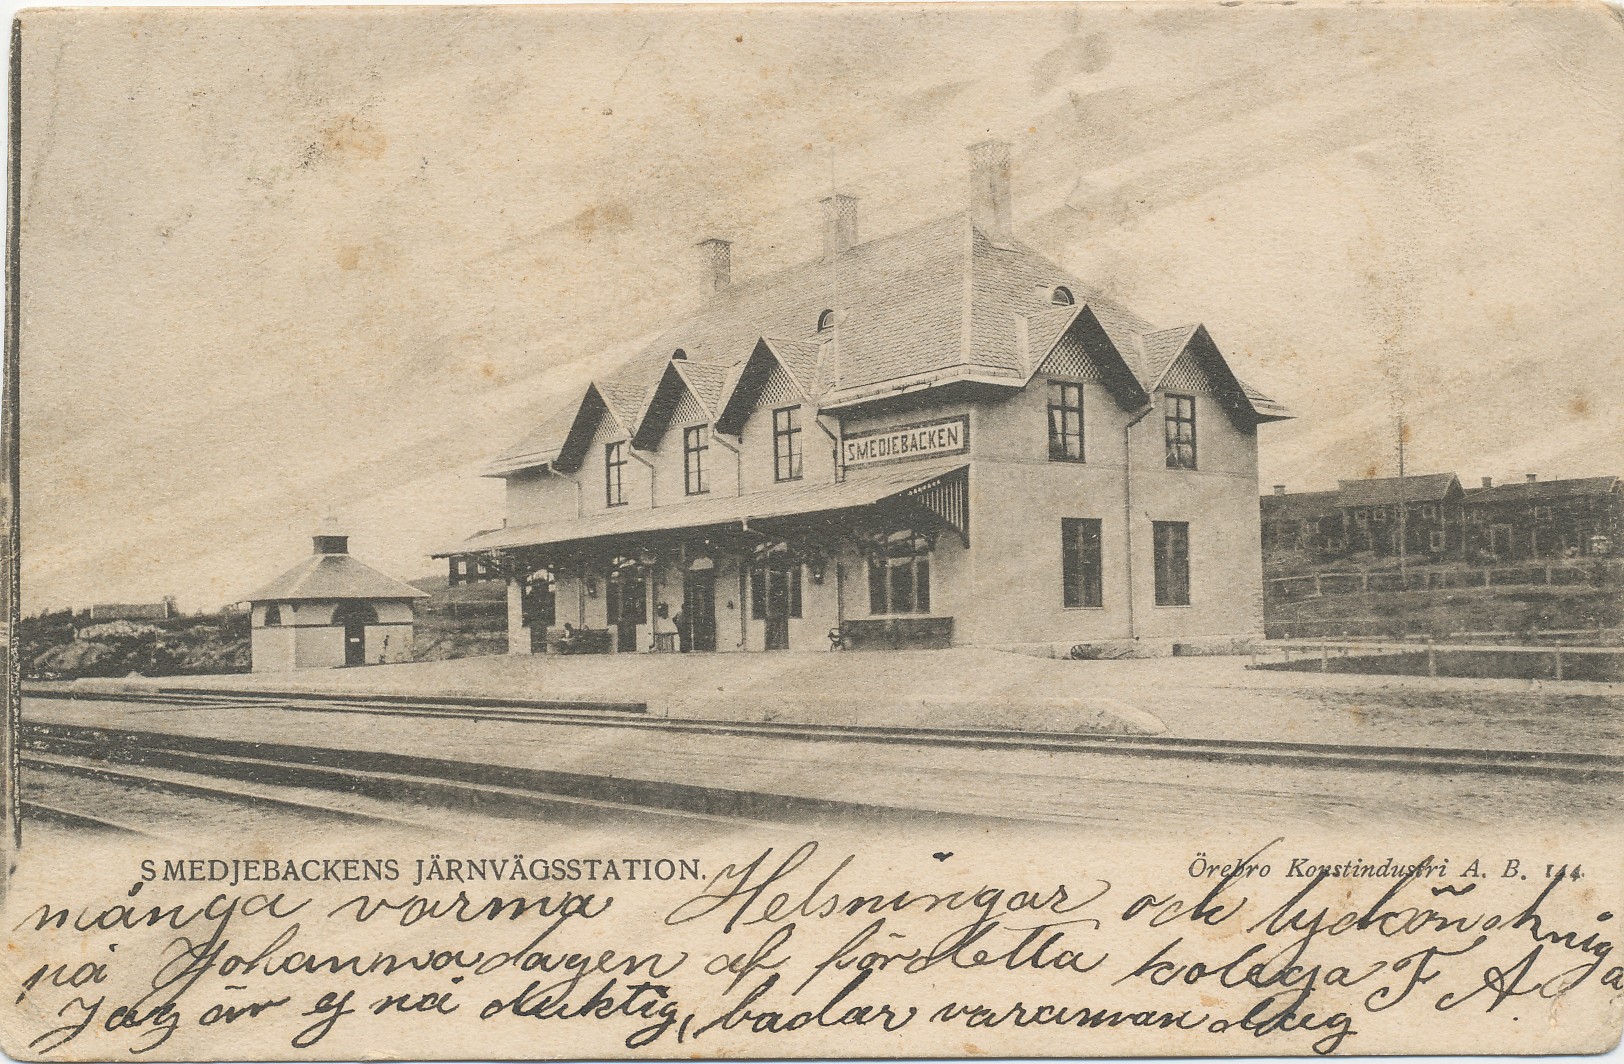 SMEDJEBACKEN
SMEDJEBACKENS JÄRNVÄGSSTATION.
Örebro Konstindustri A. B. 144.
många varma Helsningar och
på Johannadagen af fördetta kolega F A
Jag är ej nå duktig, badar varannan dag